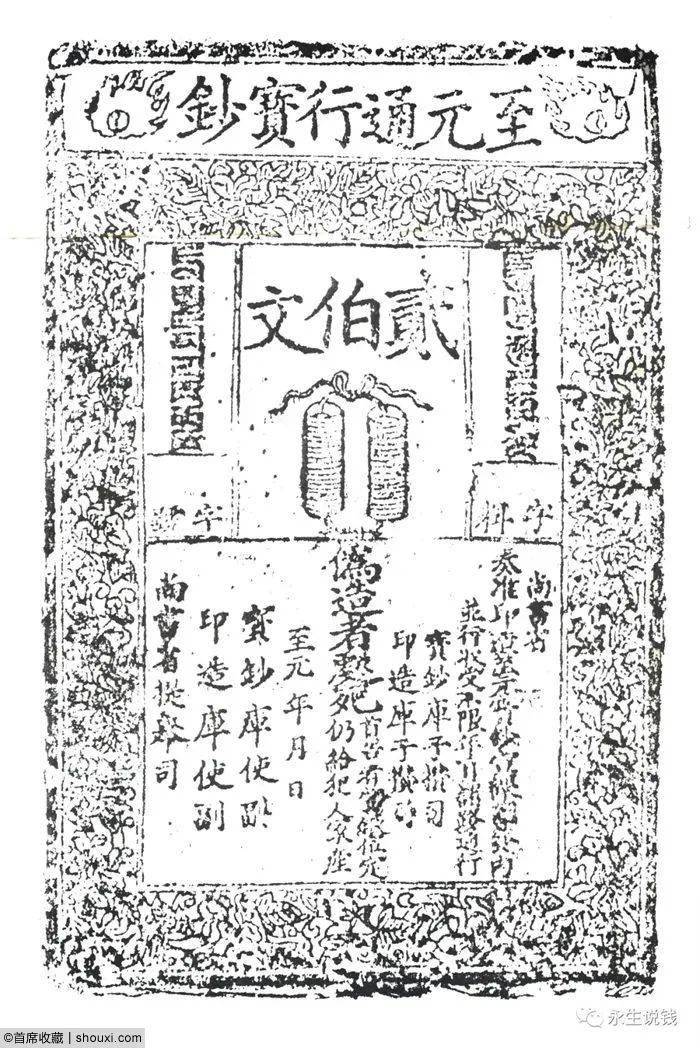 至元通行寶鈔
貳伯文
字料
字號
尚書省
奏准印造至元寶鈔宣課差役內
並行收受不限年月諸路通行
寶鈔庫子攢司
印造庫子攢司
偽造者處死
首告者賞銀伍定
仍給犯人家產
至元年月日
寶鈔庫使副
印造庫使副
尚書省提舉司
永生说钱
@首席收藏 | shouxi.com